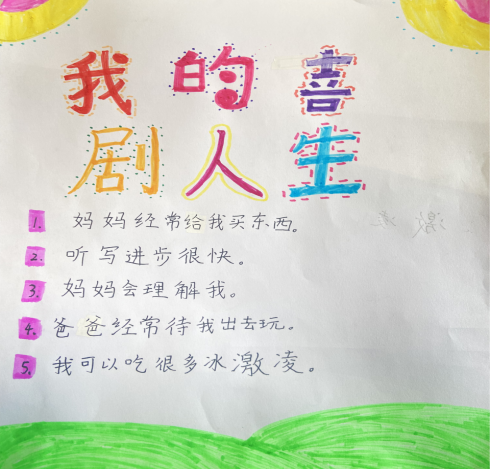 我的喜
剧人生
1. 妈妈经常给我买东西。
2. 听写进步很快。
3. 妈妈会理解我。
4. 爸爸经常待我出去玩。
5. 我可以吃很多冰激凌。